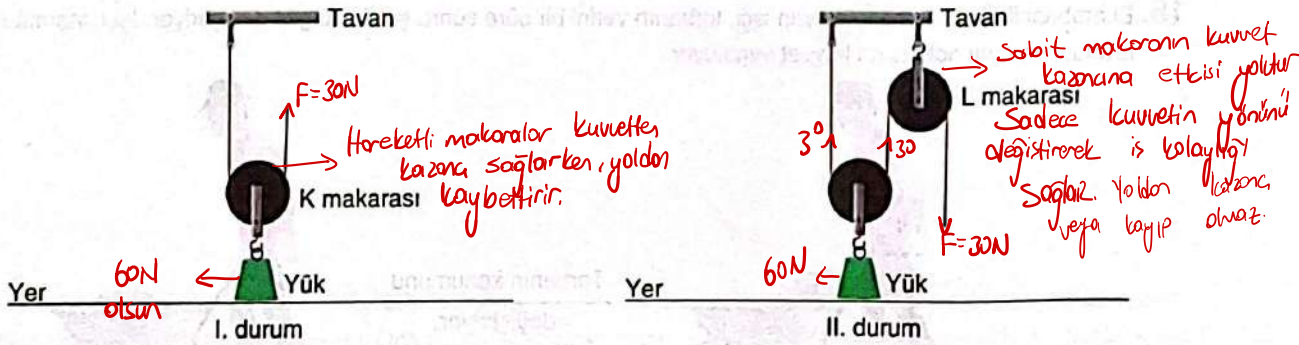 Tavan
F=30N
Hareketli makaralar kuvvetten
kazanç sağlarken, yoldan
kaybettirir.
K makarası
60N
olsun
Yük
Yer
I. durum
Tavan
Sabit makaranın kuvvet
kazancına etkisi yoktur
L makarası
Sadece kuvvetin yönünü
değiştirerek iş kolaylığı
sağlar. Yoldan kazanç
veya kayıp olmaz.
30
30
F=30N
60N
Yük
Yer
II. durum